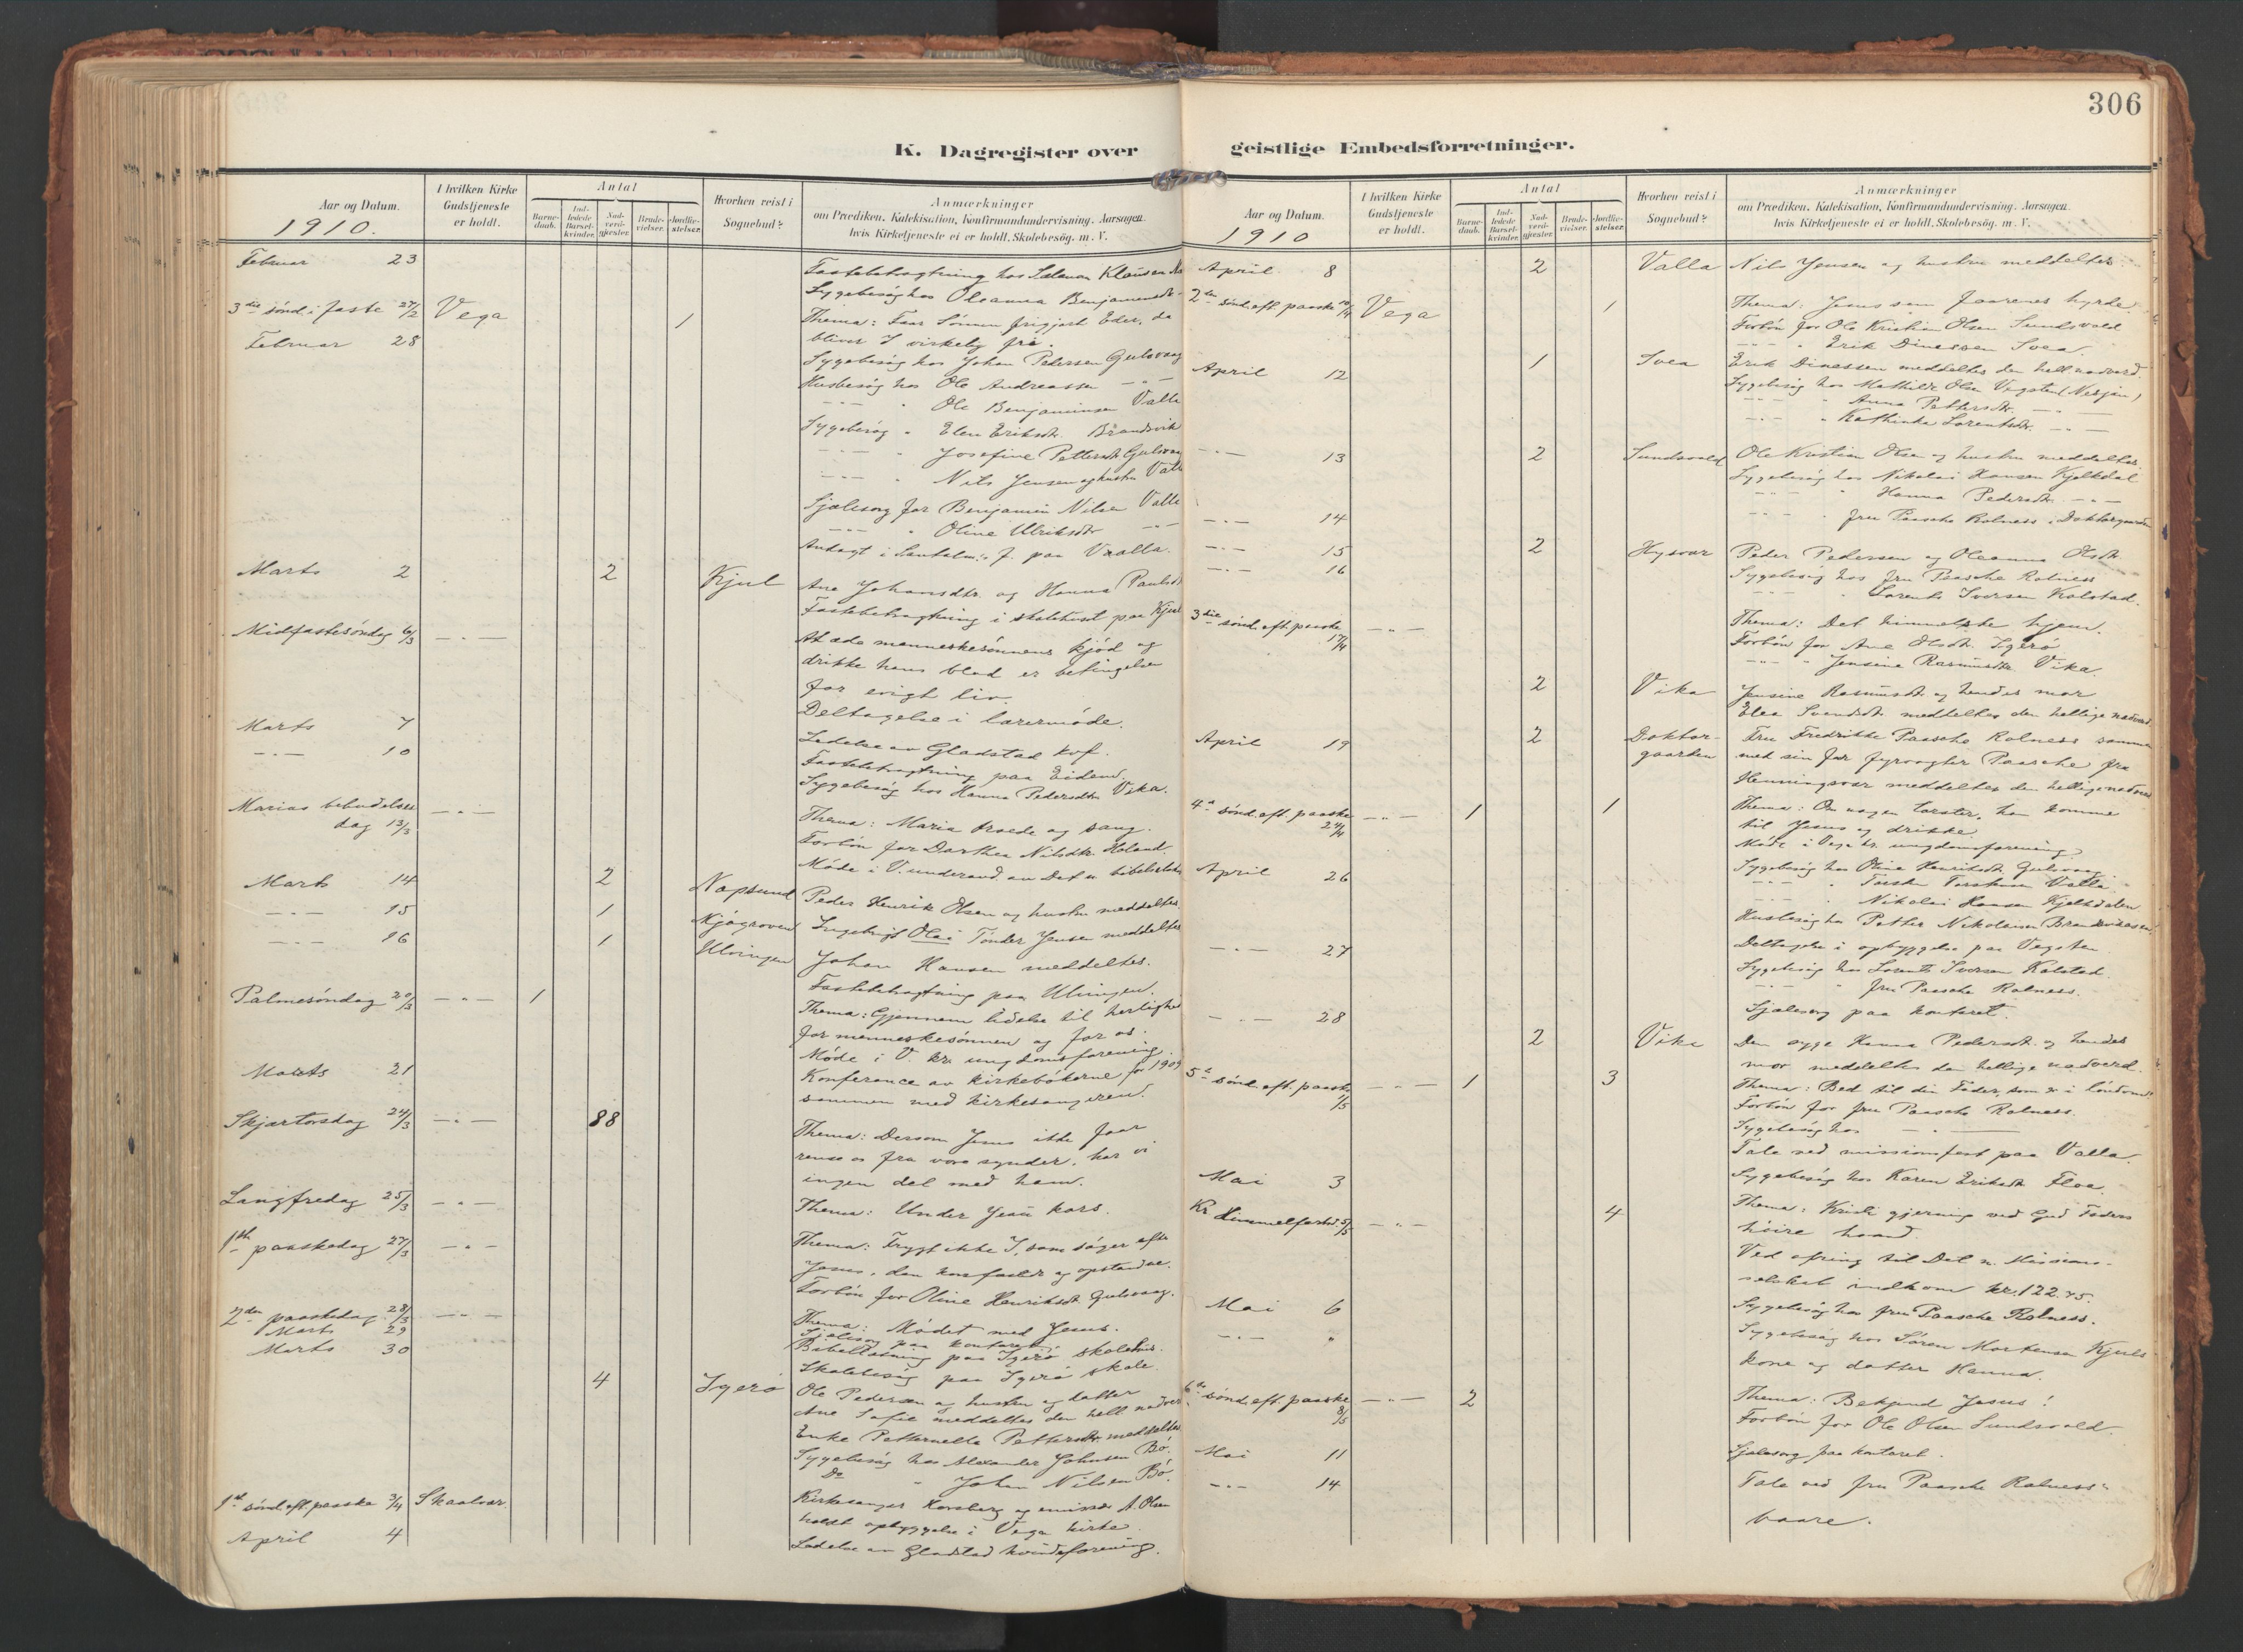 306
K. Dagregister over
Aar og Datum.
1910.
I hvilken Kirke Gudstjeneste er holdt.
Antal
Barne-daab.
Ind-ledede Barsel-kvinder.
Nad-verd-gjester.
Brude-vielser.
Jordfæ-stelser.
Hvorhen reist i Sognebud?
Anmærkninger
om Prædiken, Katekisation, Konfirmandundervisning. Aarsagen
hvis Kirketjeneste ei er holdt. Skolebesög. m. V.
Februar 23 Fastebetragtning hos Klausen
Sygebesög hos Oleanna Benjaminsdtr
3die sønd. i faste 27/2 Vega 1 Thema: Faar Sønnen frigjort Eder, da
bliver I virkelig fri.
Februar 28 Sygebesög hos Johan Pedersen Gulsvaag
Husbesøg hos Ole Andreassen — " —
" Ole Benjaminsen Valla
Sygebesøg " Elen Eriksdtr. Brandsvik
" Josefine Pettersdtr Gulsvaag
" Nils Jensen og hustru Valla
Sjælesorg for Benjamin Nilsen Valla
" Oline Ulriksdtr
Andagt i paa Valla.
Marts 2 2 Kjul Ane Johansdtr. og Hanna Paulsdtr
Fastebetragtning i skolehuset paa Kjul
Midfastesöndag 6/3 — " — At æde menneskesønnens kjød og
drikke hans blod er betingelsen
for evigt liv.
Marts 7 Deltagelse i lærermøde.
— " — 10 Ledelse av Gladstad kvf.
Fastebetragtning paa Eidem.
Sygebesøg hos Hanna Pedersdtr Vika.
Marias bebudelses
dag 13/3 — " — Thema: Maria Glæde og sang.
Forbön for Dorthea Nilsdtr. Holand
Møde i V. underavd. av Det n. bibelselskab
Marts 14 2 Napsund Peder Henrik Olsen og hustru meddeltes.
— " — 15 1 Mjögroven Ingebrigt Olai Tönder Jensen meddeltes
— " — 16 1 Ulvingen Johan Hansen meddeltes.
Fastebetragtning paa Ulvingen.
Palmesöndag 20/3 — " — 1 Thema: Gjennem lidelse til herlighed
for menneskesønnen og for os.
Møde i V. kr. ungdomsforening
Marts 21 Konferance av kirkebøkerne for 1909
sammen med kirkesangeren.
Skjærtorsdag 24/3 — " — 88 Thema: Dersom Jesus ikke faar
rense os fra vore synder, har vi
ingen del med ham.
Langfredag 25/3 — " — Thema: Under Jesu kors.
1ste paaskedag 27/3 — " — Thema: Frygt ikke I, som søger efter
Jesus, den korsfæstede og opstandne.
Forbön for Oline Henriksdtr Gulsvaag.
2den paaskedag 28/3 — " — Thema: Mødet med Jesus.
Marts 29 Sjælesorg paa kontoret
Marts 30 Bibellæsning paa Igerö skolehus.
Skolebesøg paa Igerö skole.
4 Igerö Ole Pedersen og hustru og datter
Ane Sofie meddeltes den hell nadver
Enke Petternella Pettersdtr. meddeltes
Sygebesøg hos Alexander Johnsen Bö.
Do " Johan Nilsen Bö.
1ste sönd. eft. paaske 3/4 Skaalvær. Kirkesanger Korsberg og emissær A. Olsen
holdt opbyggelse i Vega kirke
April 4 Ledelse av Gladstad kvindeforening.
geistlige Embedsforretninger.
Aar og Datum.
1910
I hvilken Kirke Gudstjeneste er holdt.
Antal
Barne-daab.
Ind-ledede Barsel-kvinder.
Nad-verd-gjester.
Brude-vielser.
Jordfæ-stelser.
Hvorhen reist i Sognebud?
Anmærkninger
om Prædiken, Katekisation, Konfirmandundervisning. Aarsagen
hvis Kirketjeneste ei er holdt. Skolebesög. m. V.
April 8 2 Valla Nils Jensen og hustru meddeltes.
2den sönd. eft. paaske 10/4 Vega 1 Thema: Jesus som faarenes hyrde.
Forbön for Ole Kristian Olsen Sundsvold
" Erik Dinessen Svea.
April 12 1 Svea Erik Dinessen meddeltes den hell nadverd.
Sygebesøg hos Mathilde Olsen Vegsten (Nesjan)
" Anna Pettersdtr. — " —
" Kathinka Lorentsdtr. — " —
— " — 13 2 Sundsvold Ole Kristian Olsen og hustru meddeltes.
Sygebesøg hos Nikolai Hansen Kjelkdal
" Hanna Pedersdtr. — " —
— " — 14 " fru Paasche Rolness, Doktorgaarden
— " — 15 2 Hysvær Peder Pedersen og Oleanna Olsdtr.
— " — 16 Sygebesøg hos fru Paasche Rolness
" Lorents Iversen Kolstad.
3die sönd. eft. paaske 17/4 — " — Thema: Det himmelske hjem.
Forbön for Ane Olsdtr. Igerö
" Jensine Rasmusdtr Vika.
2 Vika Jensine Rasmusdtr. og hendes mor
Elen Svendsdtr. meddeltes den hellige nadverd
April 19 2 Doktor-gaarden Fru Fredrikke Paasche Rolness sammen
med sin far fyrvogter Paasche fra
Henningsvær meddeltes den hellige nadverd
4de sönd. eft. paaske 24/4 — " — 1 1 Thema: Om nogen törster, han komme
til Jesus og drikke.
Møde i Vega kr. ungdomsforening
April 26 Sygebesøg hos Oline Henriksdtr. Gulsvaag
" Valla
" Nikolai Hansen Kjelkdalen
Husbesøg hos Petter Nikolaisen Brandsvikaasen
— " — 27 Deltagelse i opbyggelse paa Vegsten
Sygebesøg hos Lorents Iversen Kolstad.
" fru Paasche Rolness.
— " — 28 Sjælesorg paa kontoret.
2 Vika Den syge Hanna Pedersdtr. og hendes
mor meddeltes den hellige nadverd.
5te sönd. eft. paaske 1/5 — " — 1 3 Thema: Bed til din Fader, som er i löndom
Forbön for fru Paasche Rolness.
Sygebesøg hos — " —
Tale ved missionsfest paa Valla.
Mai 3 Sygebesøg hos Karen Eriksdtr Floa.
Kr Himmelfartsd. 5/5 — " — 4 Thema: Kristi gjerning ved Gud Faders
höire haand.
Ved ofring til Det n. Missions-
selskab indkom kr. 122.45.
Mai 6 Sygebesøg hos fru Paasche Rolness.
— " — " Sygebesøg hos Sören Mortensen Kjuls
kone og datter Hanna.
6te sönd. eft. paaske 8/5 — " — 2 Thema: Bekjend Jesus!
Forbön for Ole Olsen Sundsvold.
Mai 11 Sjælesorg paa kontoret.
— " — 14 Tale ved fru Paasche Rolness's
baare.